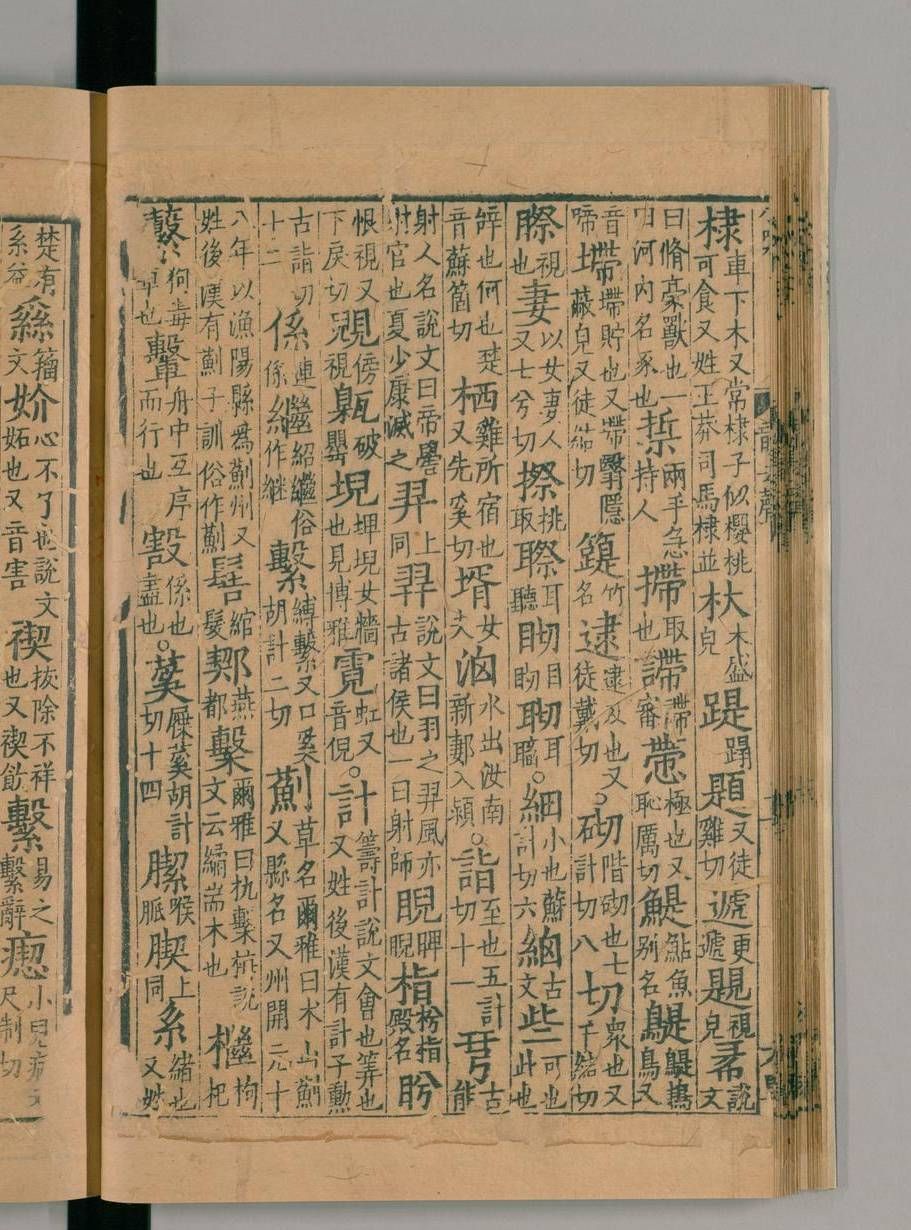 棣車下木又常棣子似櫻桃可食又姓王莽司馬棣並杕木盛皃踶蹋題又徒雞切遞更遞題視皃㣇說文
曰脩豪獸也一曰河內名豕也㨖兩手急持人㩅取也諦審懘極也又恥厲切鯷鮎魚別名鶗鶗鴂鳥又
音啼㙷㙷貯也又㙷翳隱蔽皃又徒結切䈕竹名逮逮及也又徒戴切○砌階砌也七計切八切衆也又千結切
瞭視也妻以女妻人又七兮切摖挑取聺耳聽䀙目䀙耳䏅○細小也蘇計切六䌷古文些可也此也
辭也何也楚音蘇箇切栖雞所宿也又先奚切壻女夫泅水出汝南新郪入潁○詣至也五計切十一羿古能
射人名說文曰帝嚳射官也夏少康滅之羿上同羿說文曰羽之羿風亦古諸侯也一曰射師睨睥睨栺枍栺殿名盻
恨視又下戾切覞傍視甈破甖堄埤堄女牆也見博雅霓虹又音倪○計籌計說文會也筭也又姓後漢有計子勳
古詣切十二係連係繼紹繼俗作継繫縛繫又口奚胡計二切薊草名爾雅曰朮山薊又縣名又州開元十
八年以漁陽縣爲薊州又姓後漢有薊子訓俗作蓟髻綰髮鄚燕都檕爾雅曰朹檕梅說文云繘耑木也檵枸杞
蘻狗毒草也䡔舟中互序而行也㲅係也盡也○蒵屧蒵胡計切十四𦞂喉脈䐼上同系緒也又姓
楚有系益䜌籀文妎心不了也說文妬也又音害禊祓除不祥也又禊飲繫易之繫辭瘛小兒病又尺制切